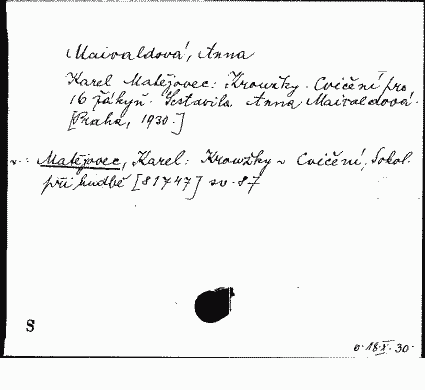 Maivaldová, Anna
Karel Matějovec: Kroužky. Cvičení pro
16 žákyň. Sestavila Anna Maivaldová.
[Praha, 1930.]
v.: Matějovec, Karel: Kroužky ~ Cvičení, Sokol.
při hudbě [81747] sv. 87
S
o. 18.X.30.